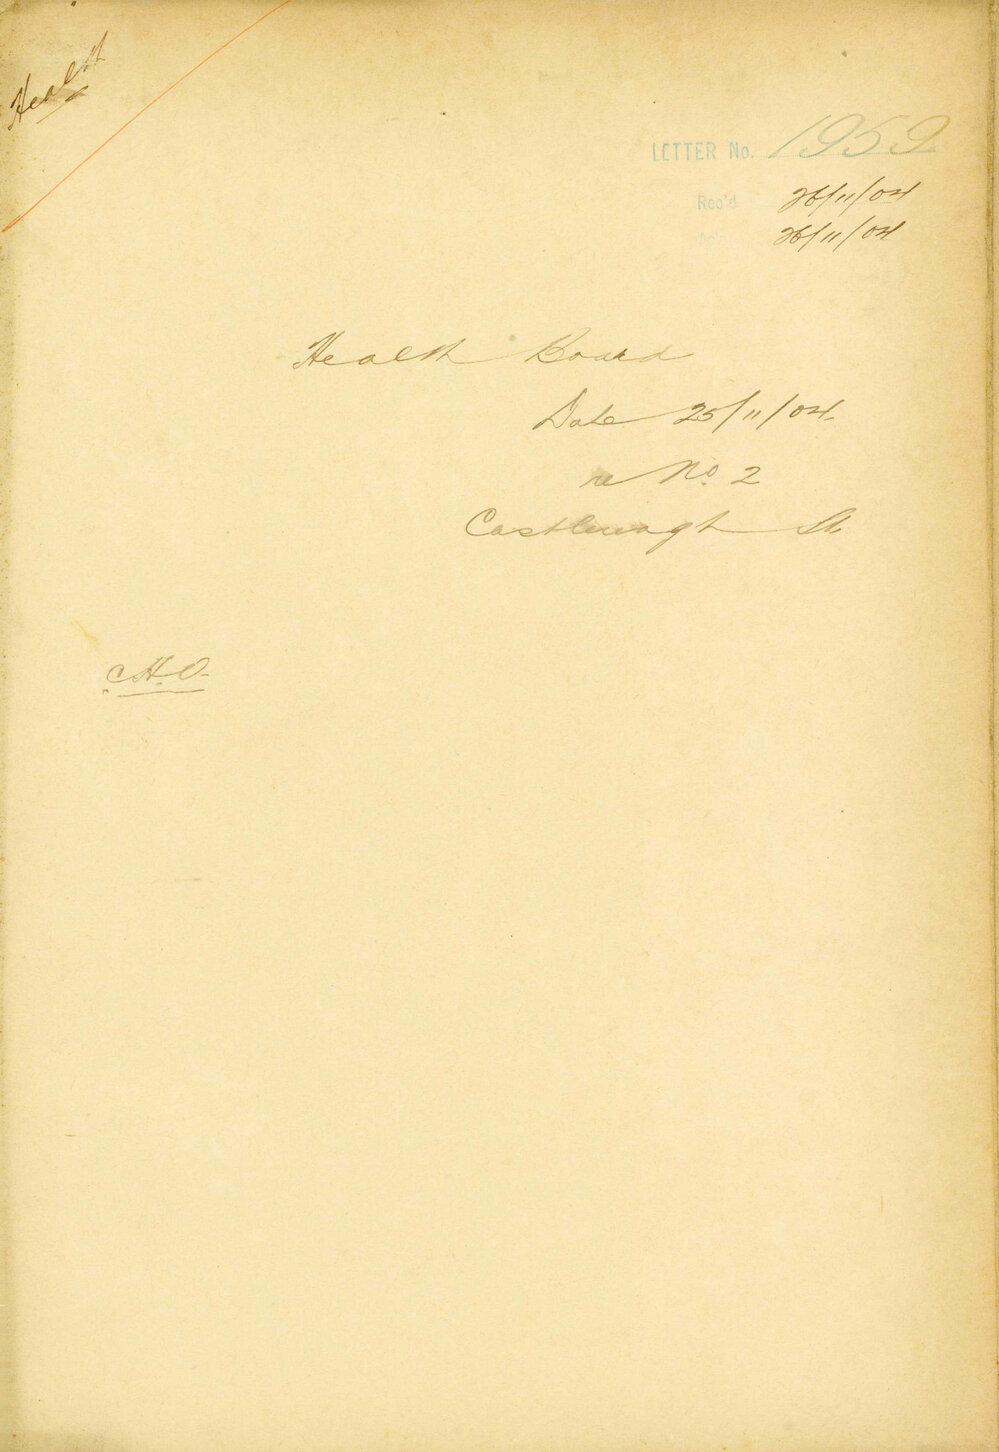 Health
LETTER No. 1959
Rec'd 26/11/04
26/11/04
Health Board
Date 25/11/04.
re No. 2
Castlereagh St.
C.H.O.